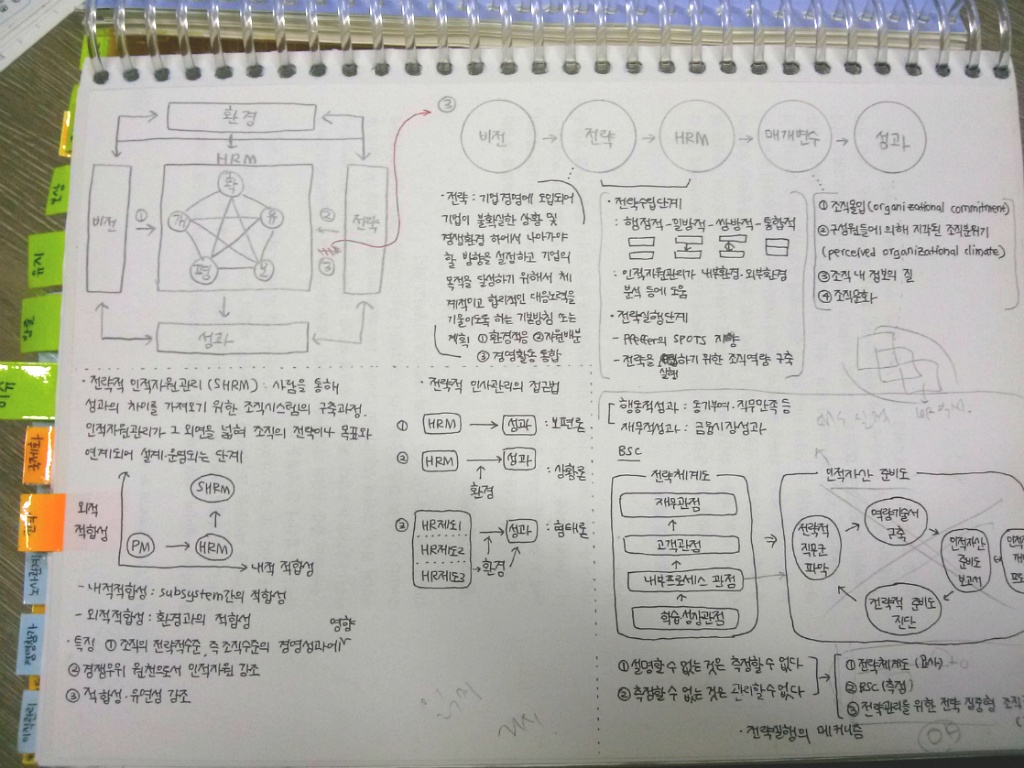 환경
HRM
비전
①
확
개
유
평
보
②
③
전략
성과
③
비전
전략
HRM
매개변수
성과
· 전략 : 기업경영에 도입되어
기업이 불확실한 상황 및
경쟁환경 하에서 나아가야
할 방향을 설정하고 기업의
목적을 달성하기 위해서 체
계적이고 합리적인 대응노력을
기울이도록 하는 기본방침 또는
계획 ①환경적응 ②자원배분
③ 경영활동 통합
· 전략수립단계
: 행정적-일방적-쌍방적-통합적
: 인적자원관리가 내부환경·외부환경
분석 등에 도움
· 전략실행단계
- Pfeffer의 SPOTS 지향
- 전략을 실행하기 위한 조직역량 구축
① 조직몰입(organizational commitment)
② 구성원들에 의해 지각된 조직분위기
(perceived organizational climate)
③ 조직 내 정보의 질
④ 조직문화
· 전략적 인적자원관리 (SHRM) : 사람을 통해
성과의 차이를 가져오기 위한 조직시스템의 구축과정.
인적자원관리가 그 외연을 넓혀 조직의 전략이나 목표와
연계되어 설계·운영되는 단계
외적
적합성
SHRM
PM
HRM
내적 적합성
- 내적적합성 : subsystem간의 적합성
- 외적적합성 : 환경과의 적합성
· 특징 ① 조직의 전략적수준, 즉 조직수준의 경영성과에 영향
② 경쟁우위 원천으로서 인적자원 강조
③ 적합성·유연성 강조
· 전략적 인사관리의 접근법
① HRM → 성과 : 보편론
② HRM → 성과 : 상황론
환경
③ HR제도1
HR제도2
HR제도3
성과 : 형태론
환경
행동적성과 : 동기부여·직무만족 등
재무적성과 : 금융시장성과
BSC
전략체계도
재무관점
고객관점
내부프로세스 관점
학습성장관점
인적자산 준비도
전략적
직무군
파악
역량기술서
구축
인적자산
준비도
보고서
전략적 준비도
진단
인적자
① 설명할 수 없는 것은 측정할 수 없다
② 측정할 수 없는 것은 관리할 수 없다
① 전략체계도 (묘사)
② BSC (측정)
③ 전략관리를 위한 전략 집중형 조직
· 전략실행의 메커니즘
유지
이슈
국제화
전략
노사관계
경영참가
이직관리